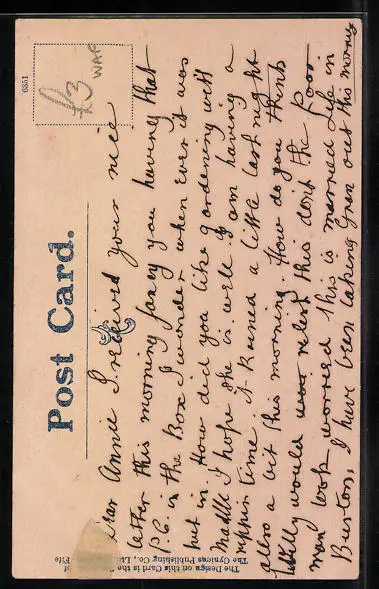 6351
£3
WAF
Post Card.
Dear Annie I received your nice
letter this morning fancy you having that
P.C. in the Box I wonder when ever it was
put in. How did you like gardening with
Maddle I hope she is well I am having a
ripping time it Rained a little last night
also a bit this morning. How do you think
Willy would relish this dont the Poor
man look worried this is married Life in
Burton, I have been taking Gran out this morning
The Design on this Card is the
of
The Cynicus Publishing Co., Lt
Fife